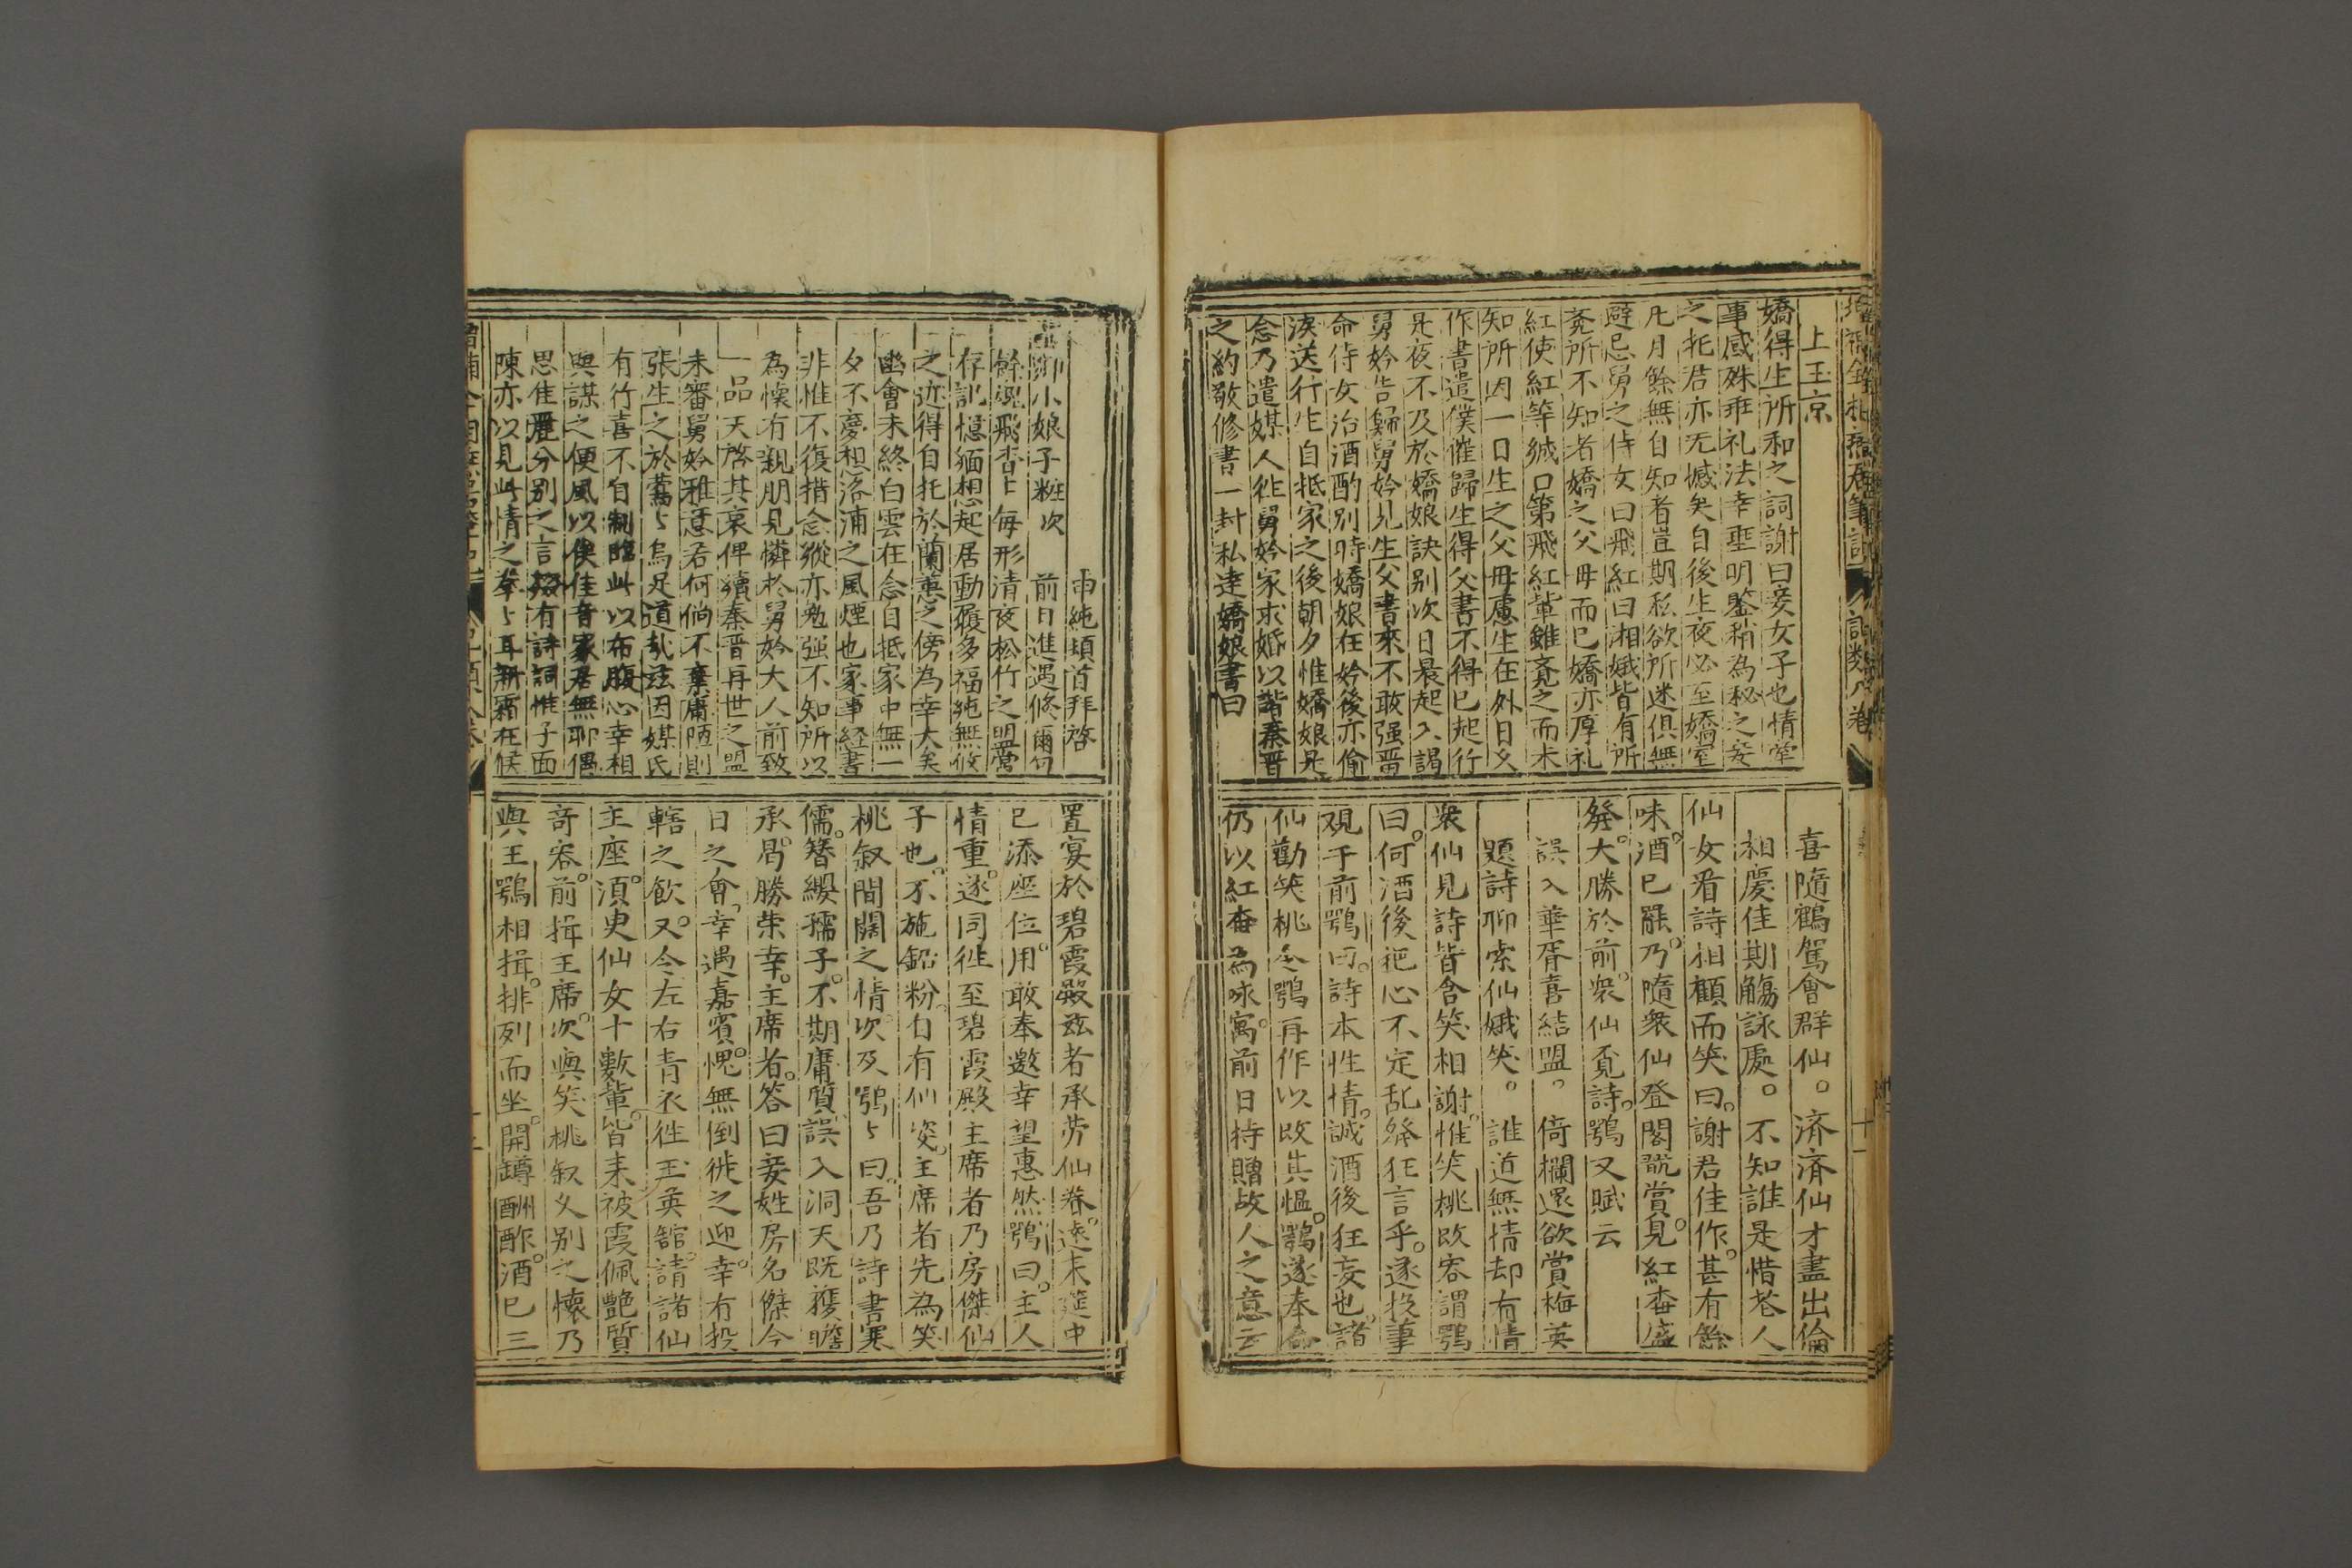 上玉京
嬌得生所和之詞謝曰妾女子也情牽
事感殊乖礼法幸聖明鑒稍為秘之妾
之托君亦无憾矣自後生夜必至嬌室
凡月餘無自知者豈期私欲所迷俱無
避忌舅之侍女曰飛紅曰湘娥皆有所
覺所不知者嬌之父母而已嬌亦厚礼
紅使紅等緘口第飛紅輩雖覺之而未
知所因一日生之父母慮生在外日久
作書遣僕催歸生得父書不得已起行
是夜不及於嬌娘訣别次日晨起入謁
舅妗告歸舅妗見生父書來不敢强畱
命侍女治酒酌别時嬌娘在妗後亦偷
淚送行生自抵家之後朝夕惟嬌娘是
念乃遣媒人徃舅妗家求婚以諧秦晋
之約敬修書一封私達嬌娘書曰
喜隨鶴駕會群仙。濟濟仙才盡出倫
相慶佳期觴詠處。不知誰是惜花人
仙女看詩相顧而笑曰。謝君佳作。甚有餘
味。酒已罷。乃隨衆仙登閣翫賞。見紅梅盛
發。大勝於前。衆仙覔詩。鶚又賦云
誤入華胥喜結盟。倚欄還欲賞梅英
題詩聊索仙娥笑。誰道無情却有情
衆仙見詩皆含笑相謝。惟笑桃改容謂鶚
曰。何酒後把心不定乱發狂言乎。遂投筆
硯于前鶚曰。詩本性情。誠酒後狂妄也。諸
仙勸笑桃令鶚再作以改其愠。鶚遂奉命
仍以紅梅為咏。寓前日持贈故人之意云
申純頓首拜啓
小娘子粧次　前日進遇倐爾旬
餘魂飛杳上每形清夜松竹之盟當
存訊憶緬想起居動履多福純無似
之迹得自托於蘭蕙之傍為幸大矣
幽會未終白雲在念自抵家中無一
夕不夢想洛浦之風煙也家事経書
非惟不復措念縱亦勉强不知所以
為懷有親朋見憐於舅妗大人前致
一品天啓其衷俾續秦晋再世之盟
未審舅妗雅意若何倘不棄庸陋則
張生之於鶯上烏足道哉兹因媒氏
有行喜不自制臨此以布腹心幸相
與謀之便風以俟佳音家居無聊偶
思佳麗分别之言綴有詩詞惟子面
陳亦以見此情之拳上耳新霜在候
置宴於碧霞殿兹者承劳仙眷。遠末筵中
已添座位。用敢奉邀幸望惠然。鶚曰。主人
情重。遂同徃至碧霞殿主席者乃房傑仙
子也。不施鉛粉。自有仙姿。主席者先為笑
桃叙間闊之情。次及鶚上曰。吾乃詩書寒
儒。簪纓孺子。不期庸質誤入洞天既獲瞻
承。曷勝荣幸。主席者。答曰妾姓房名傑今
日之會。幸遇嘉賓。愧無倒徙之迎。幸有投
轄之飲。又令左右青衣徃玉英舘。請諸仙
主座。須臾仙女十數輩。皆来被霞佩艶質
竒容。前揖王席。次與笑桃叙久别之懷乃
與王鶚相揖。排列而坐。開罇酬酢。酒已三